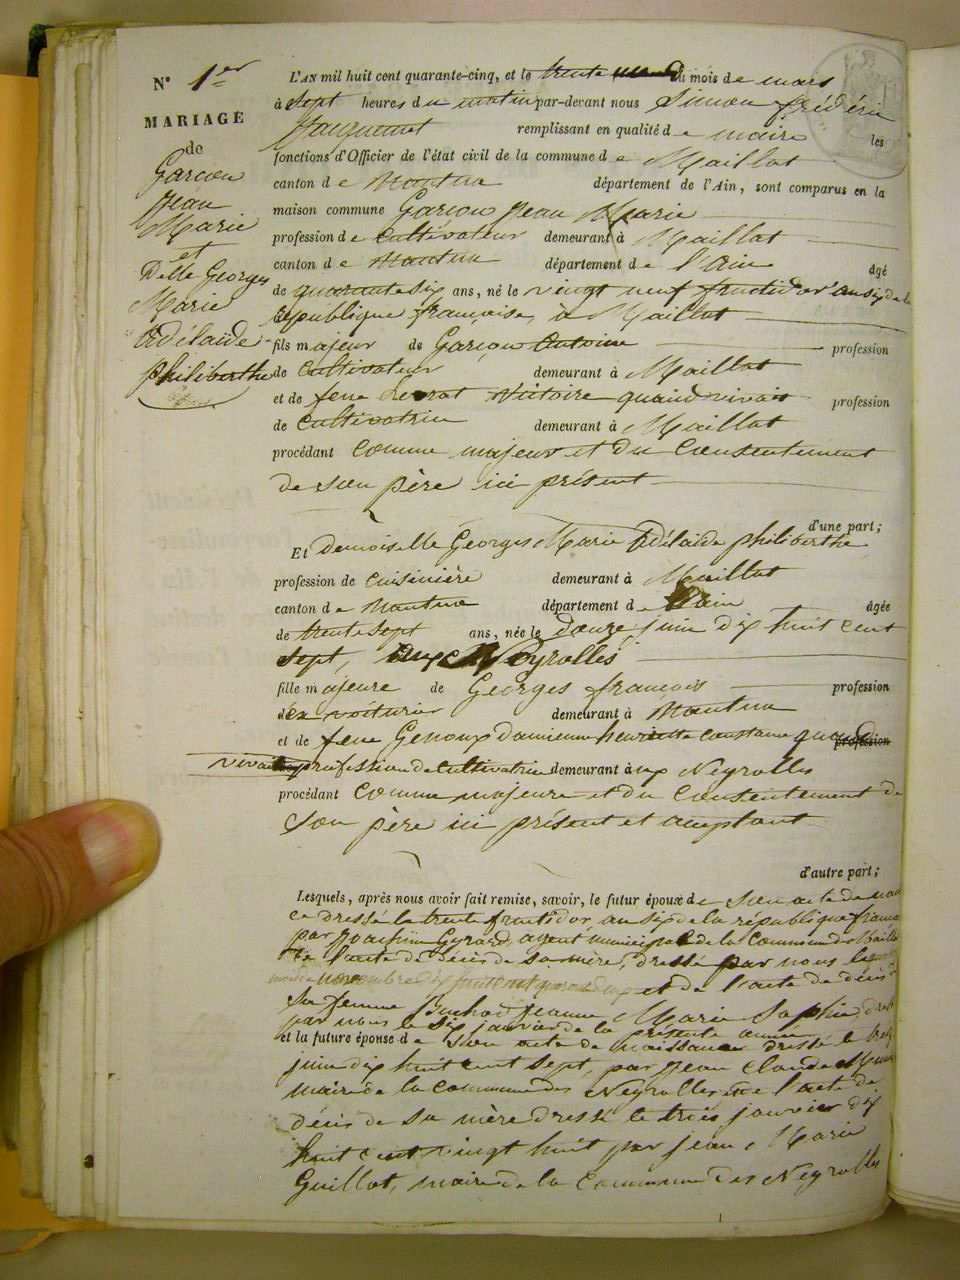 N° 1er
MARIAGE
de
Garcon
Jean
Marie
et
Delle Georges
Marie
Adélaïde
philiberthe
L'AN mil huit cent quarante-cinq, et le trente du mois de mars
à sept heures du matin par-devant nous Simon frédéric
Jacquemet remplissant en qualité de maire les
fonctions d'Officier de l'état civil de la commune de Maillat
canton de Nantua département de l'Ain, sont comparus en la
maison commune Garcon Jean Marie
profession de cultivateur demeurant à Maillat
canton de Nantua département de l'ain âgé
de quarante six ans, né le vingt neuf fructidor an six de la
république française, à Maillat
fils majeur de Garcon Antoine profession
de cultivateur demeurant à Maillat
et de feue Levrat Victoire quand vivait profession
de cultivatrice demeurant à Maillat
procédant comme majeur et du consentement
de son père ici présent
d'une part;
Et demoiselle Georges Marie Adélaïde philiberthe
profession de cuisinière demeurant à Maillat
canton de Nantua département de l'ain âgée
de trente sept ans, née le douze juin dix huit cent
sept, aux Neyrolles
fille majeure de Georges françois profession
d'ex voiturier demeurant à Nantua
et de feue Genoux damienne henriette constance quand profession
vivait profession de cultivatrice demeurant aux Neyrolles
procédant comme majeure et du consentement de
son père ici présent et acceptant
d'autre part;
Lesquels, après nous avoir fait remise, savoir, le futur époux de son acte de nais
ce dressé le trente fructidor an six de la république frança
par Joachim Gyrard, agent municipal de la commune de Maillat
de l'acte de décès de sa mère, dressé par nous le
novembre dix huit cent quarante et de l'acte de décès d
sa femme Buchod Jeanne Marie Sophie dressé
par nous le six janvier de la présente année
et la future épouse de son acte de naissance dressé le treize
juin dix huit cent sept, par Jean Claude
maire de la commune des Neyrolles et de l'acte de
décès de sa mère dressé le trois janvier dix
huit cent vingt huit par Jean Marie
Guillot, maire de la commune des Neyrolles